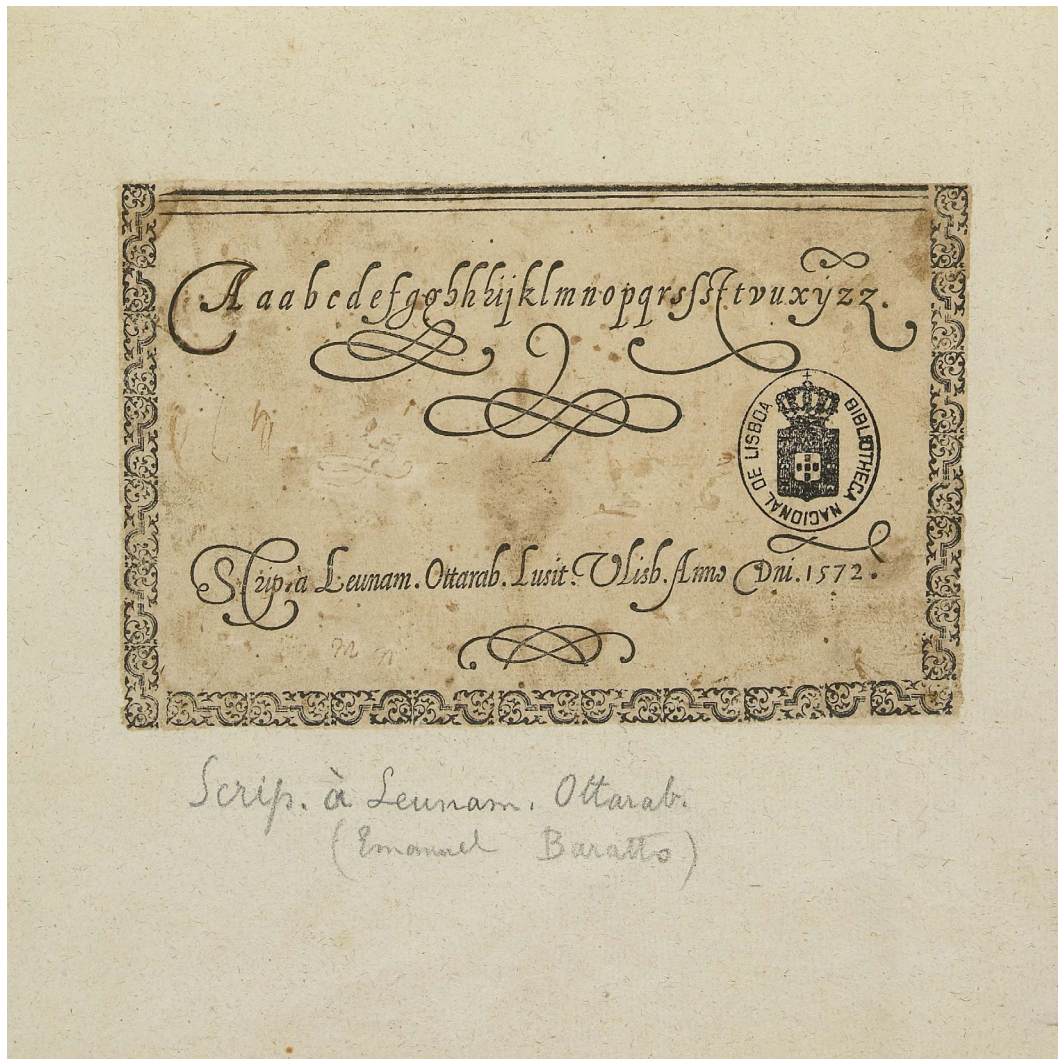 A a a b c d e f g g h h h i j k l m n o p q r s ſ s ſt t v u x ÿ z z.
BIBLIOTHECA NACIONAL DE LISBOA
Scrip. à Leunam. Ottarab. Lusit. Vlisb. Anno Dni. 1572.
Scrip. à Leunam. Ottarab.
(Emanuel Baratto)